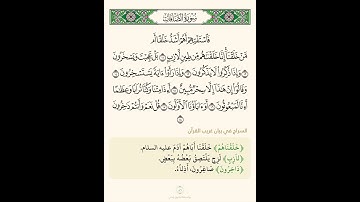 سُورَةُ الصَّافَّاتِ
فَاسْتَفْتِهِمْ أَهُمْ أَشَدُّ خَلْقًا أَم
مَّنْ خَلَقْنَا إِنَّا خَلَقْنَاهُم مِّن طِينٍ لَّازِبٍ ۝ بَلْ عَجِبْتَ وَيَسْخَرُونَ
۝ وَإِذَا ذُكِّرُوا لَا يَذْكُرُونَ ۝ وَإِذَا رَأَوْا آيَةً يَسْتَسْخِرُونَ ۝
وَقَالُوا إِنْ هَٰذَا إِلَّا سِحْرٌ مُّبِينٌ ۝ أَإِذَا مِتْنَا وَكُنَّا تُرَابًا وَعِظَامًا
أَإِنَّا لَمَبْعُوثُونَ ۝ أَوَآبَاؤُنَا الْأَوَّلُونَ ۝ قُلْ نَعَمْ وَأَنتُمْ دَاخِرُونَ
۝
السراج في بيان غريب القرآن
﴿خَلَقْنَاهُمْ﴾ خَلَقْنَا أَبَاهُمْ آدَمَ عليه السلام.
﴿لَازِبٍ﴾ لَزِجٍ يَلْتَصِقُ بَعْضُهُ بِبَعْضٍ.
﴿دَاخِرُونَ﴾ صَاغِرُونَ، أَذِلَّاءُ.